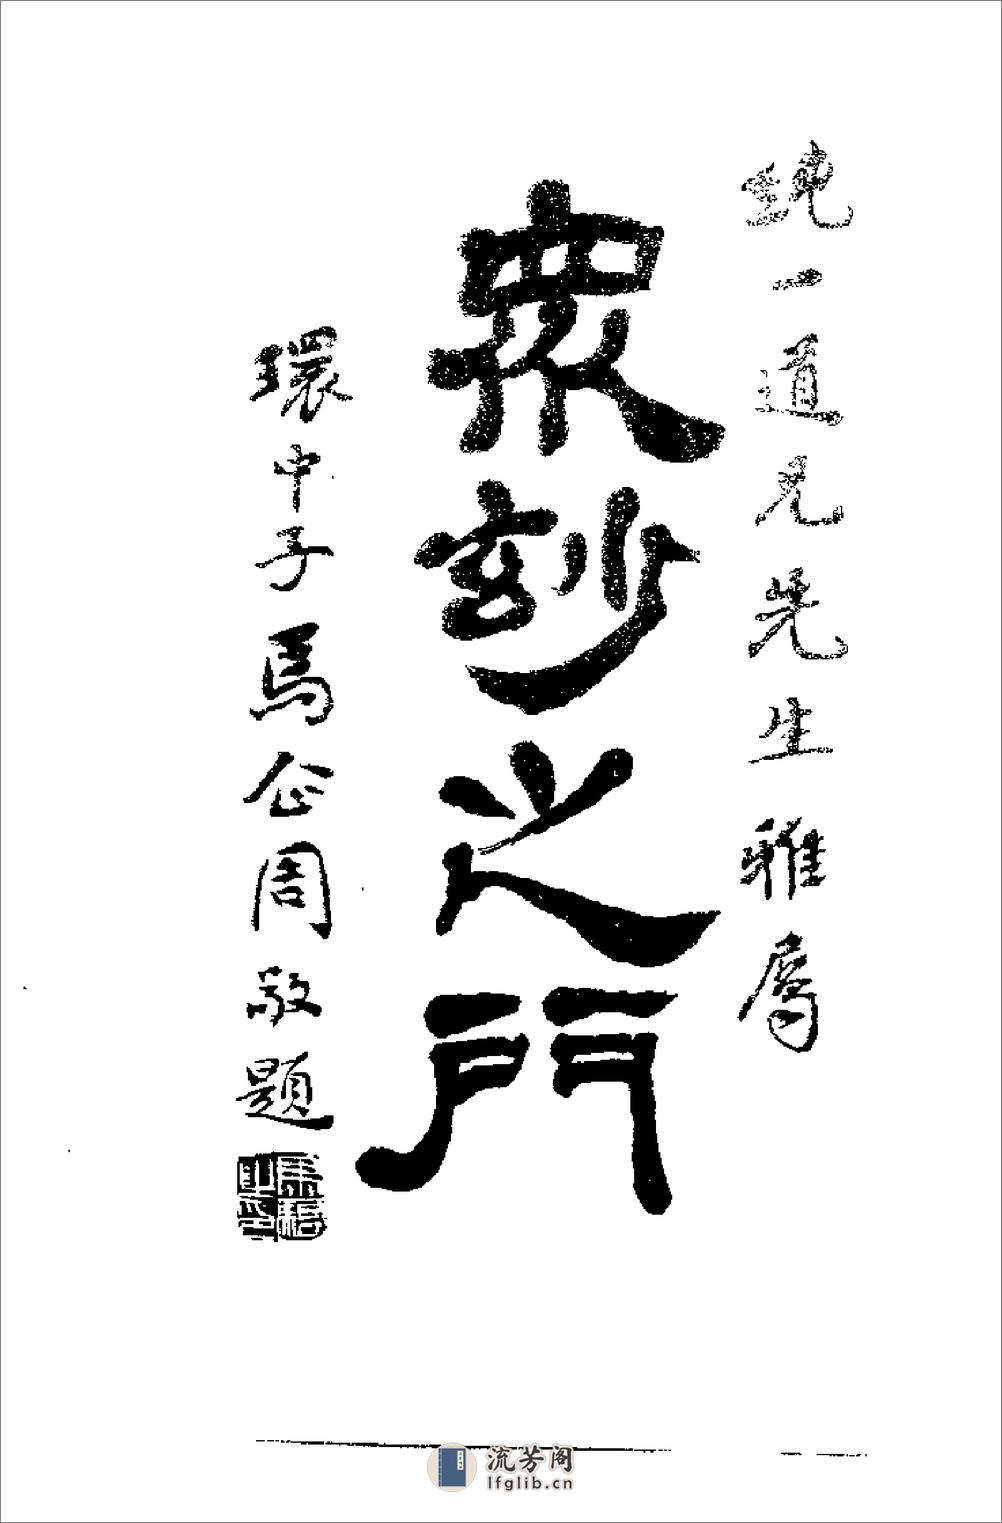 純一道兄先生雅屬
衆玅之門
環中子馬企周敬題
流芳阁
lfglib.cn